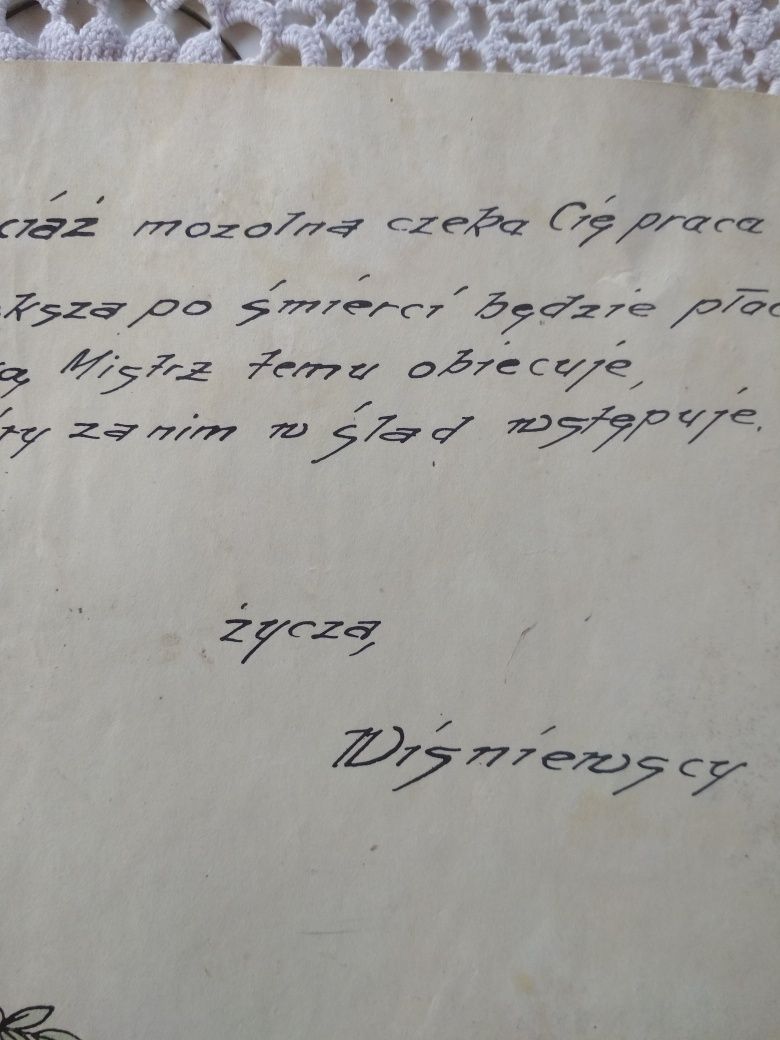 ciąż mozolna czeka Cię praca
ksza po śmierci będzie płac
ą Mistrz temu obiecuje,
ry za nim w ślad wstępuje.
życzą,
Wiśniewscy